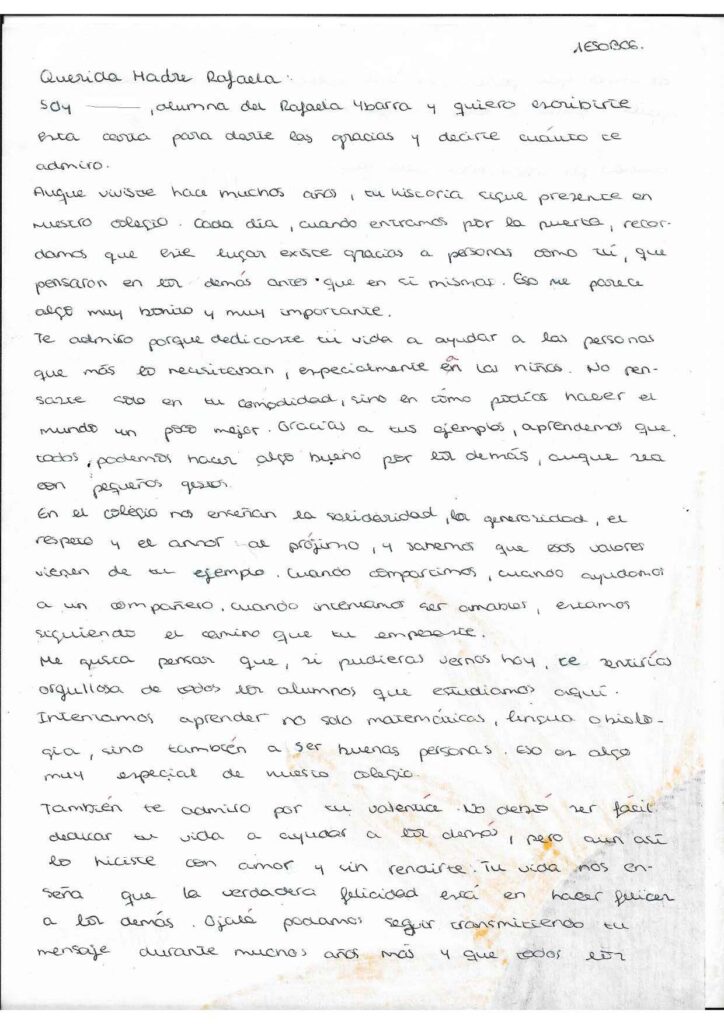 1ESOBC6.
Querida Madre Rafaela:
Soy ———, alumna del Rafaela Ybarra y quiero escribirte
esta carta para darte las gracias y decirte cuánto te
admiro.
Auque viviste hace muchos años, tu historia sigue presente en
nuestro colegio. Cada día, cuando entramos por la puerta, recor-
damos que este lugar existe gracias a personas como tú, que
pensaron en los demás antes que en si mismas. Eso me parece
algo muy bonito y muy importante.
Te admiro porque dedicaste tu vida a ayudar a las personas
que más lo necesitaban, especialmente en a los niños. No pen-
saste solo en tu comodidad, sino en cómo podías hacer el
mundo un poco mejor. Gracias a tus ejemplos, aprendemos que
todos, podemos hacer algo bueno por los demás, auque sea
con pequeños gestos.
En el colegio nos enseñan la solidaridad, la generosidad, el
respeto y el amor al prójimo, y sabemos que esos valores
vienen de tu ejemplo. Cuando compartimos, cuando ayudamos
a un compañero, cuando intentamos ser amables, estamos
siguiendo el camino que tu empezaste.
Me gusta pensar que, si pudieras vernos hoy, te sentirías
orgullosa de todos los alumnos que estudiamos aquí.
Intentamos aprender no solo matemáticas, lengua o biolo-
gía, sino también a ser buenas personas. Eso es algo
muy especial de nuestro colegio.
También te admiro por tu valentía. No debió ser fácil
dedicar tu vida a ayudar a los demás, pero aun así
lo hiciste con amor y sin rendirte. Tu vida nos en-
seña que la verdadera felicidad está en hacer felices
a los demás. Ojalá podamos seguir transmitiendo tu
mensaje durante muchos años más y que todos los